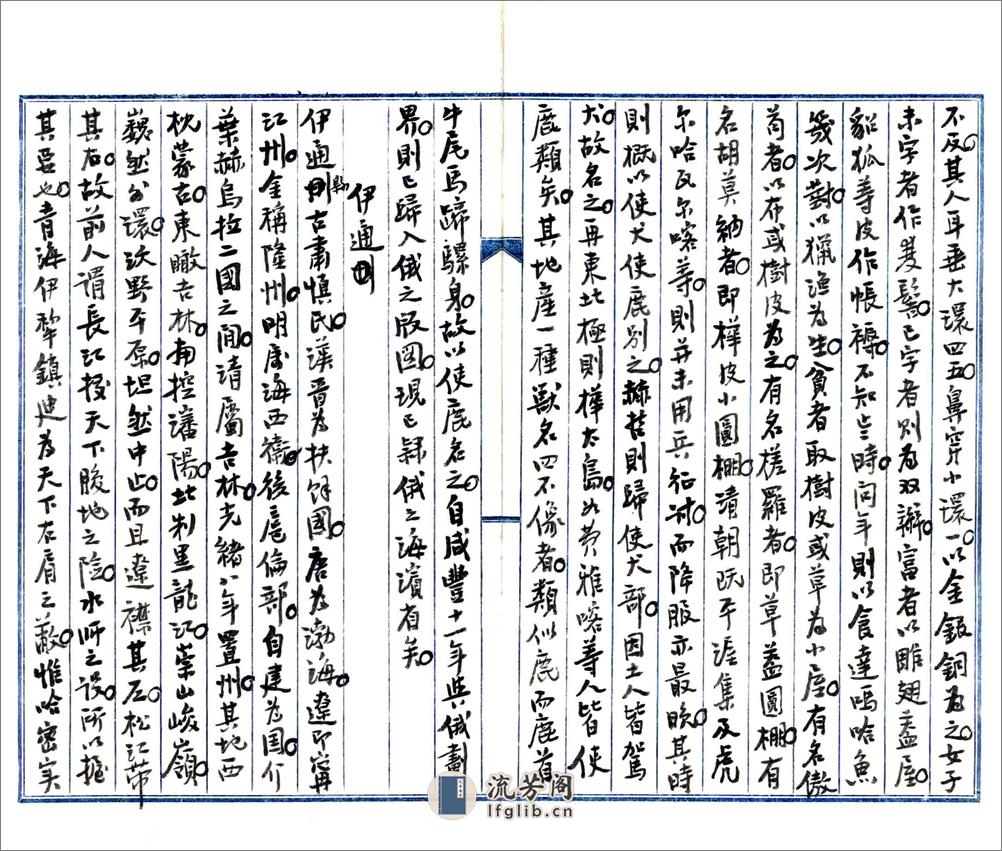 不反其人耳垂大環四五鼻穿小環一以金銀銅為之女子
未字者作雙鬟已字者則為双辮富者以雕翅盖屋
貂狐等皮作帳褥不知岁時問年則以食達嗎哈魚
幾次對以獵漁為生貧者取樹皮或草為小屋有名傲
苟者以布或樹皮為之有名槎羅者即草盖圓棚有
名胡莫納者即樺皮小圓棚清朝既平渥集及虎
尔哈瓦尔喀等則并未用兵征討而降服亦最晚其時
則概以使犬使鹿别之赫哲則歸使犬部因土人皆駕
犬故名之再東北極則樺太島如费雅喀等人皆使
鹿類矣其地産一種獸名四不像者類似鹿而鹿首
牛尾馬蹄騾身故以使鹿名之自咸豐十一年與俄劃
界則已歸入俄之版圖現已隸俄之海濱有矣
伊通州
伊通縣古肅慎氏漢晋為扶餘國唐為渤海遼即寗
江州金稱隆州明属海西衛後扈倫部自建為国介
葉赫烏拉二國之间清屬吉林光緒八年置州其地西
枕蒙古東瞰吉林南控瀋陽北制黑龍江崇山峻嶺
巍然分環沃野平原坦然中止而且遼襟其左松江带
其右故前人謂長江投天下腹地之险水师之设所以握
其要也青海伊犂鎮迪為天下右肩之蔽惟哈密实
流芳阁
lfglib.cn